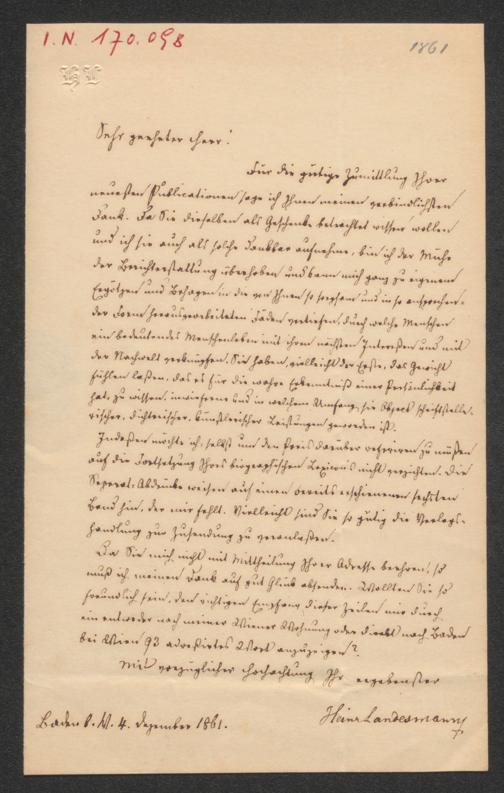 I. N. 170.098
1861
HL
Sehr geehrter Herr!
Für die gütige Zumittlung Ihrer
neuesten Publicationen sage ich Ihnen meinen verbindlichsten
Dank. Da Sie dieselben als Geschenke betrachtet wissen wollen
und ich sie auch als solche dankbar aufnehme, bin ich der Mühe
der Berichterstattung überhoben und kann mich ganz zu eigenem
Ergötzen und Behagen in die von Ihnen so sorgsam und in so ansprechen-
der Form herausgearbeiteten Fäden vertiefen, durch welche Menschen
ein bedeutendes Menschenleben mit ihren nächsten Interessen und mit
der Nachwelt verknüpfen. Sie haben, vielleicht der Erste, das Gewicht
fühlen lassen, das es für die wahre Erkenntniß einer Persönlichkeit
hat, zu wissen, inwieferne und in welchem Umfang sie Object schriftstelle-
rischer, dichterischer, künstlerischer Leistungen geworden ist.
Indessen möchte ich, selbst um den Preis darüber referiren zu müssen
auf die Fortsetzung Ihres biographischen Lexicons nicht verzichten. Die
Separat-Abdrücke weisen auf einen bereits erschienenen sechsten
Band hin, der mir fehlt. Vielleicht sind Sie so gütig die Verlags-
handlung zur Zusendung zu veranlassen.
Da Sie mich nicht mit Mittheilung Ihrer Adresse beehren, so
muß ich meinen Dank auf gut Glück absenden. Wollten Sie so
freundlich sein, den richtigen Empfang dieser Zeilen mir durch
ein entweder nach meiner Wiener Wohnung oder direkt nach Baden
bei Wien 93 adressirtes Wort anzuzeigen?
Mit vorzüglicher Hochachtung Ihr ergebenster
Heinr Landesmann
Baden b. W. 4. Dezember 1861.